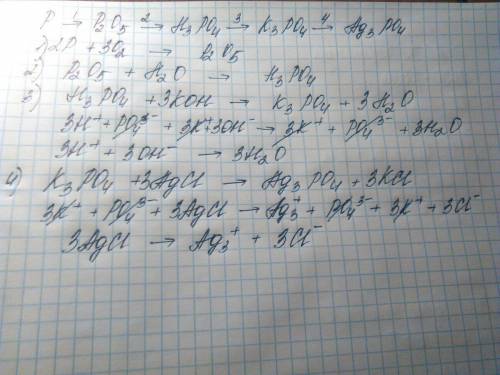 P 1→ P2O5 2→ H3PO4 3→ K3PO4 4→ Ag3PO4
1) 2P + 3O2 → P2O5
2) P2O5 + H2O → H3PO4
3) H3PO4 + 3KOH → K3PO4 + 3H2O
3H+ + PO4 3- + 3K+ 3OH- → 3K+ + PO4 3- + 3H2O
3H+ + 3OH- → 3H2O
4) K3PO4 + 3AgCl → Ag3PO4 + 3KCl
3K+ + PO4 3- + 3AgCl → Ag3+ + PO4 3- + 3K+ + 3Cl-
3AgCl → Ag3+ + 3Cl-